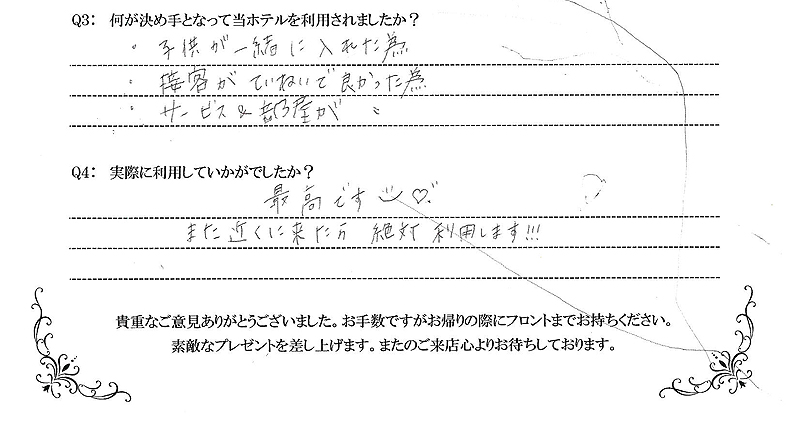 Q3： 何が決め手となって当ホテルを利用されましたか？
・子供が一緒に入れた為
・接客がていねいで良かった為
・サービス&部屋が 〃
Q4： 実際に利用していかがでしたか？
最高です♡
また近くに来たら 絶対利用します!!!
貴重なご意見ありがとうございました。お手数ですがお帰りの際にフロントまでお持ちください。
素敵なプレゼントを差し上げます。またのご来店心よりお待ちしております。